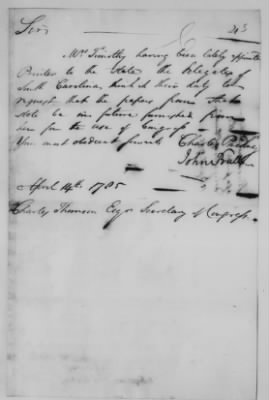 Sir
Mrs Timothy having been lately appointed
Printer to the State the Delegates of
South Carolina think it their duty to
request that the papers from that
State be in future furnished from
her for the use of Congress
Your most obedient servants Charles Pinckney
John
April 14th. 1785
Charles Thomson Esqr Secretary of Congress.